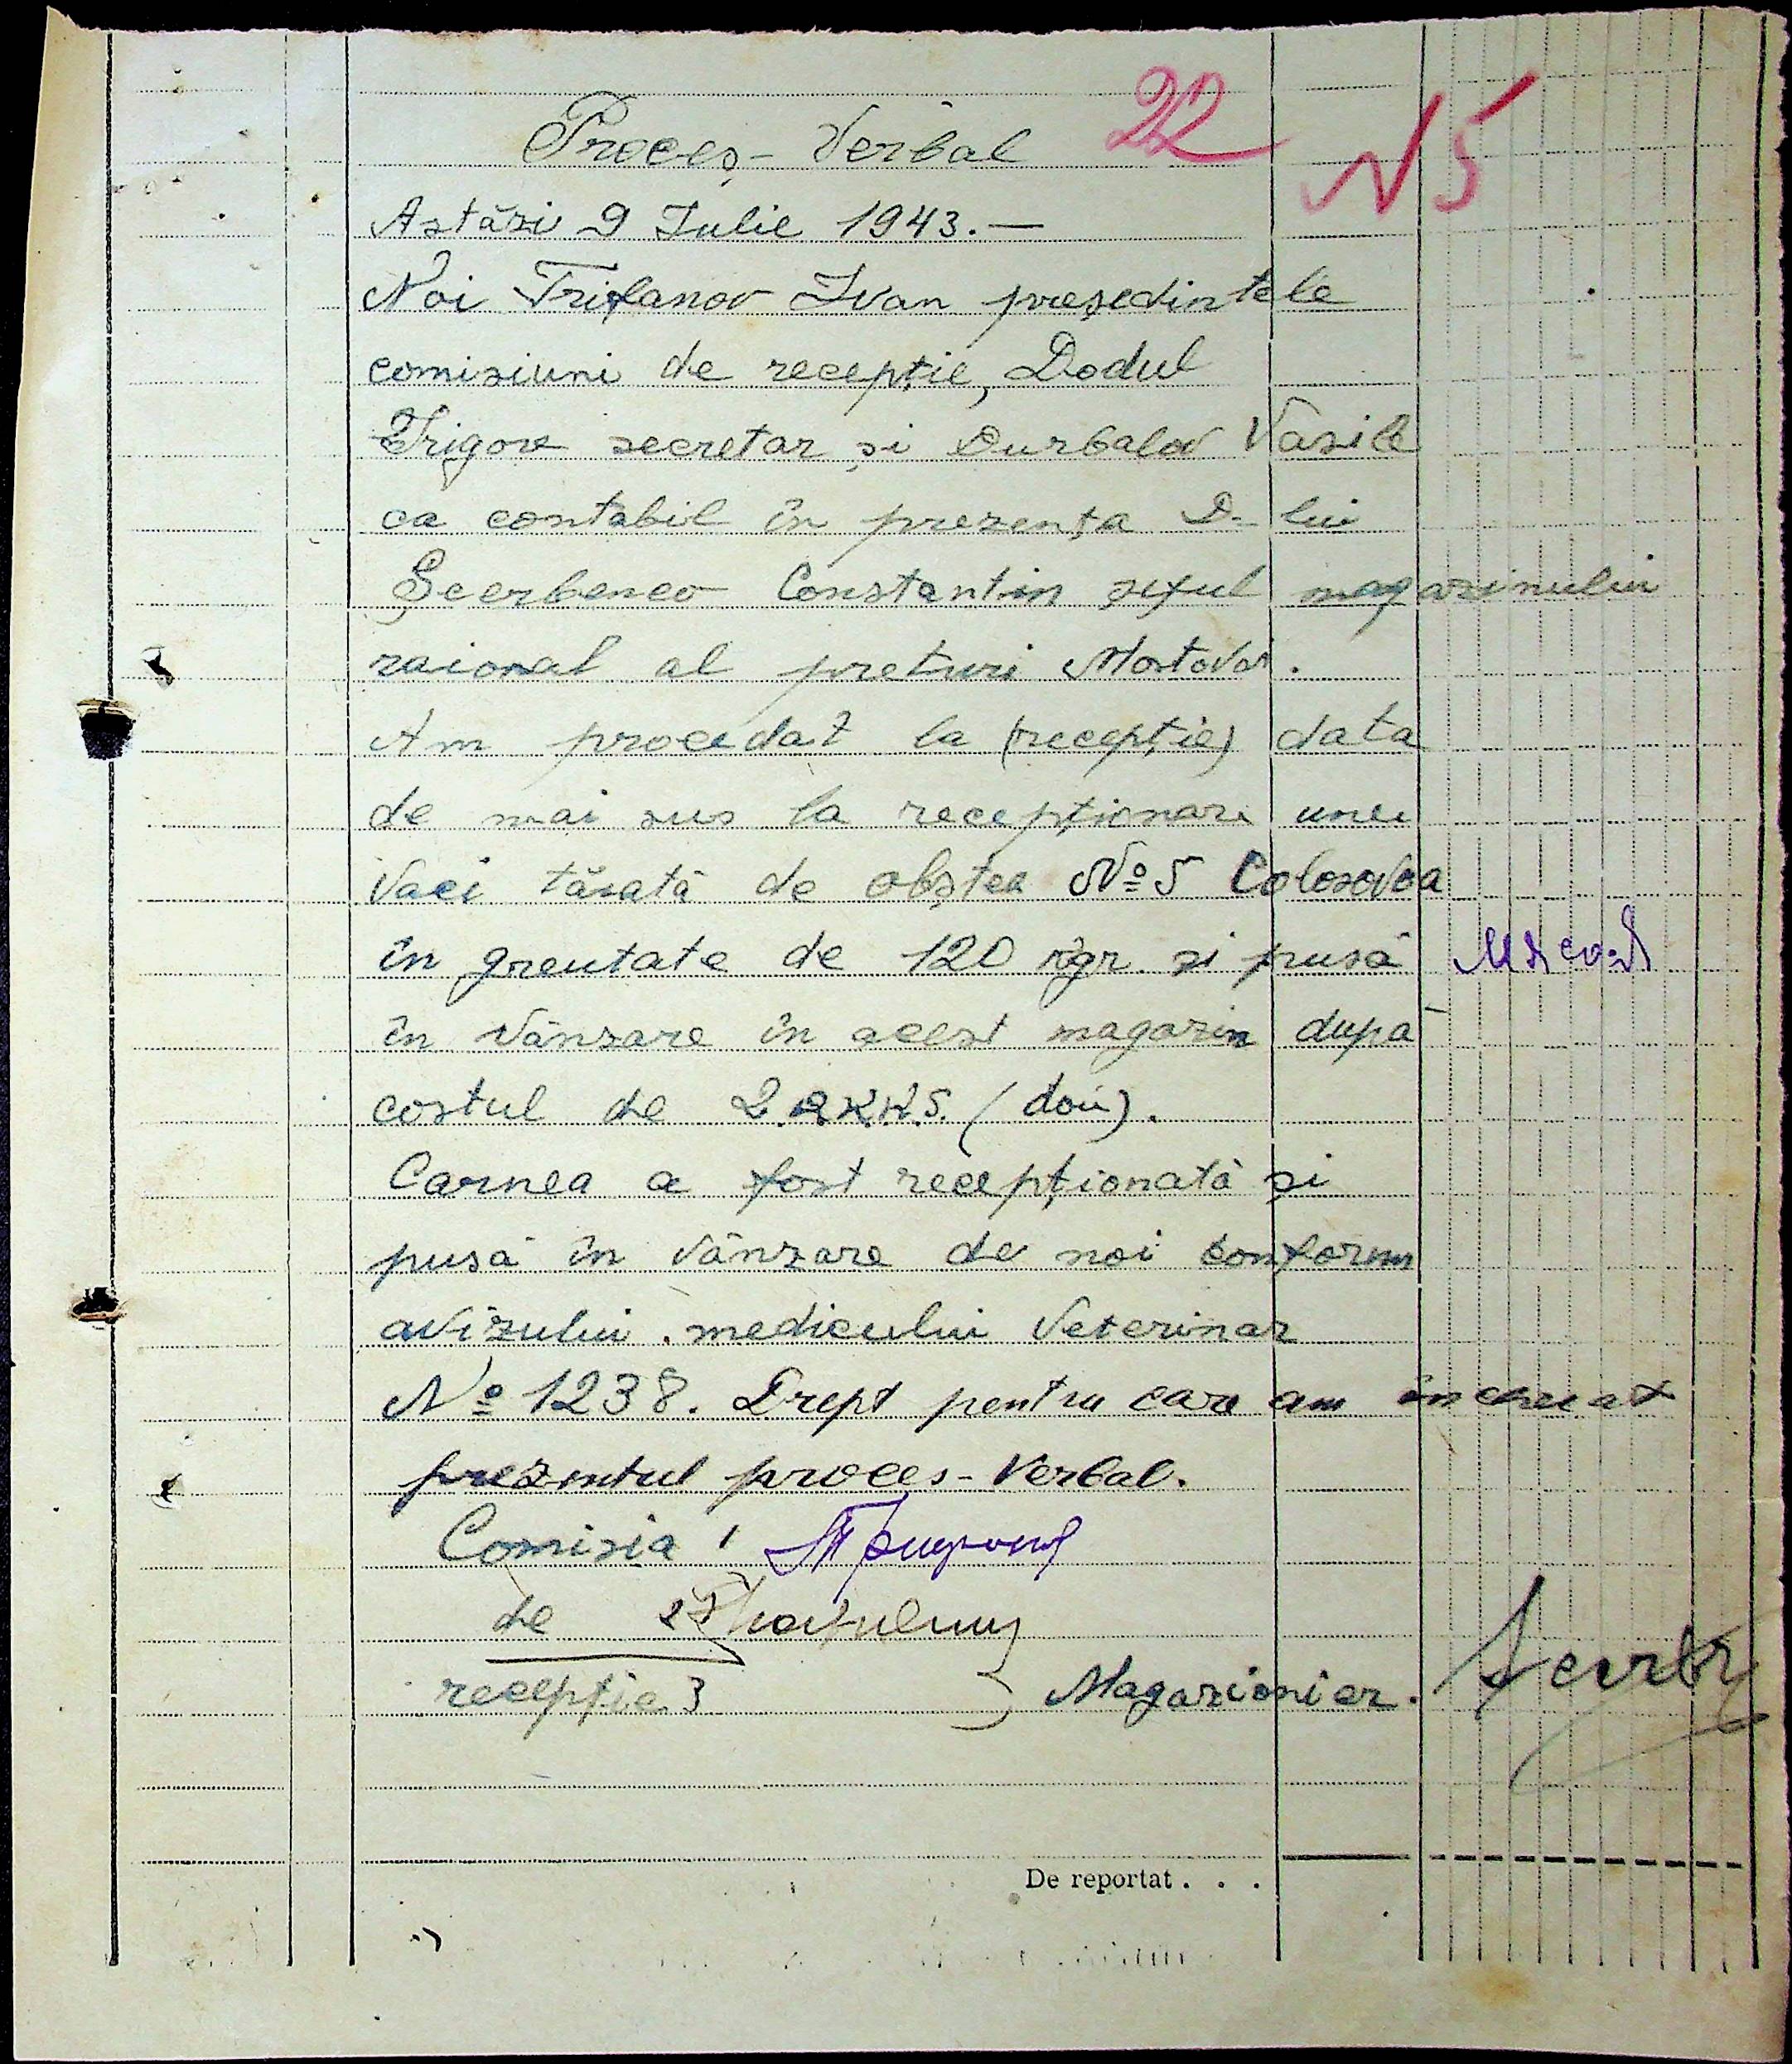 22 N 5
Proceș-Verbal
Astăzi 9 Iulie 1943.—
Noi Trifanov Ivan președintele
comisiuni de recepție, Dodul
Grigore secretar și Durbalov Vasile
ca contabil în prezența D-lui
Șcerbenco Constantin șeful magazinului
raional al preturi Mostovoi.
Am procedat la (recepție) data
de mai sus la recepționare unei
Vaci tăiată de obștea № 5 Colosovca
în greutate de 120 kgr. și pusă
în Vânzare în acest magazin după
costul de 2 RKKS. (doi).
Carnea a fost recepționată și
pusă în Vânzare de noi conform
avizului medicului Veterinar
№ 1238. Drept pentru care am încheiat
prezentul proces-Verbal.
Comisia 1
de 2
recepție 3 } Magazionier.
De reportat . . .